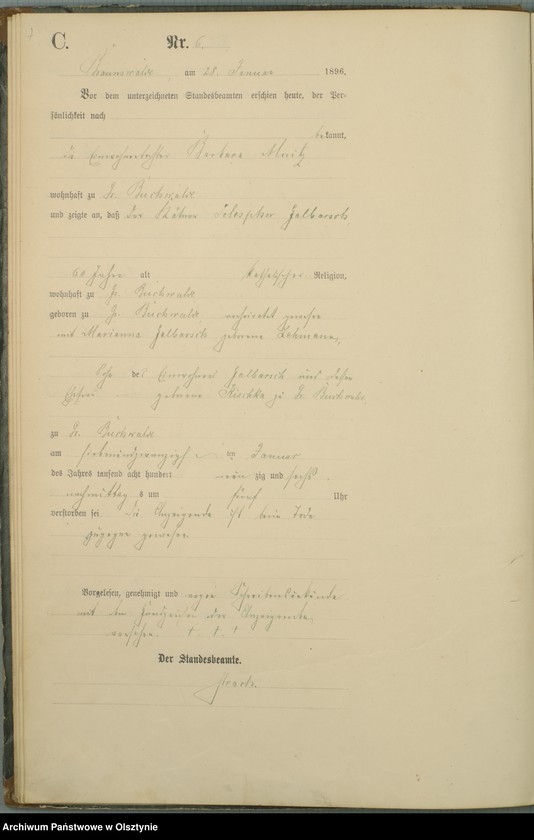 C. Nr. 6.
am 28. Januar 1896.
Vor dem unterzeichneten Standesbeamten erschien heute, der Per-
sönlichkeit nach
bekannt,
die Einwohnertochter Barbara
wohnhaft zu Gr. Buchwalde
und zeigte an, daß der Telesphor Jalbersch
60 Jahre alt katholischer Religion,
wohnhaft zu Gr. Buchwalde
geboren zu Gr. Buchwalde verheiratet gewesen
mit Marianna Jalbersch geborene Lehmann,
Sohn des Einwohners Jalbersch und dessen
Ehefrau geborene zu Gr. Buchwalde,
zu Gr. Buchwalde
am siebenundzwanzigsten Januar
des Jahres tausend acht hundert neun zig und sechs
nachmittags um fünf Uhr
verstorben sei. Die Anzeigende ist beim Tode
zugegen gewesen.
Vorgelesen, genehmigt und wegen Schreibensunkunde
mit dem Handzeichen der Anzeigenden
versehen. † † †
Der Standesbeamte.
Archiwum Państwowe w Olsztynie